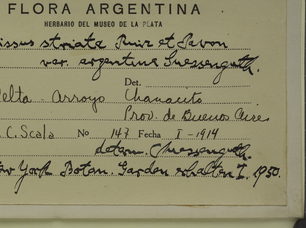 FLORA ARGENTINA
HERBARIO DEL MUSEO DE LA PLATA
issus striata Ruiz et Pavon
var. argentina Suessenguth.
Det.
elta Arroyo Chanacito
Prov. de Buenos Aires
C. Scala No 147 Fecha I-1914
determ. Suessenguth.
ew York Botan. Garden erhalten I. 1950.